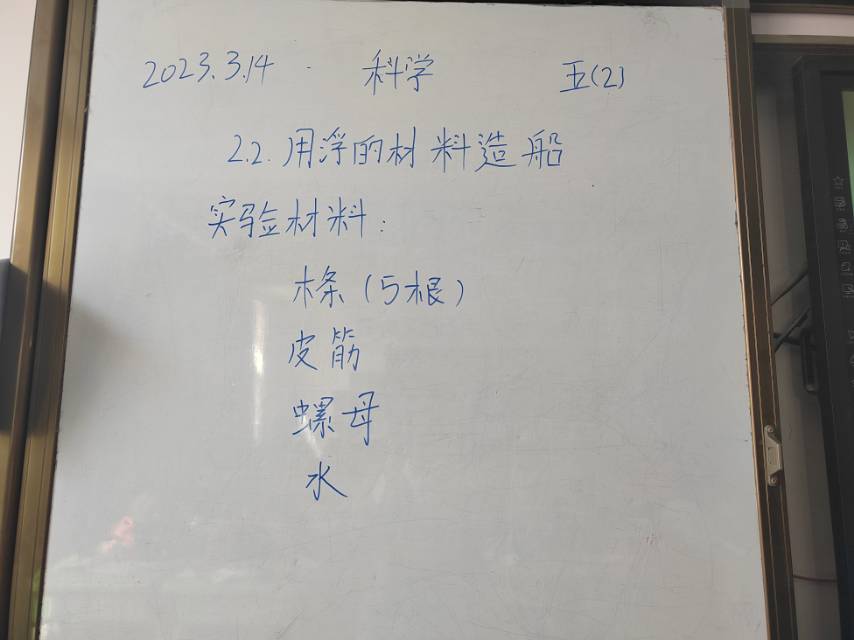 2023.3.14 科学 五(2)
2.2.用浮的材料造船
实验材料:
木条(5根)
皮筋
螺母
水